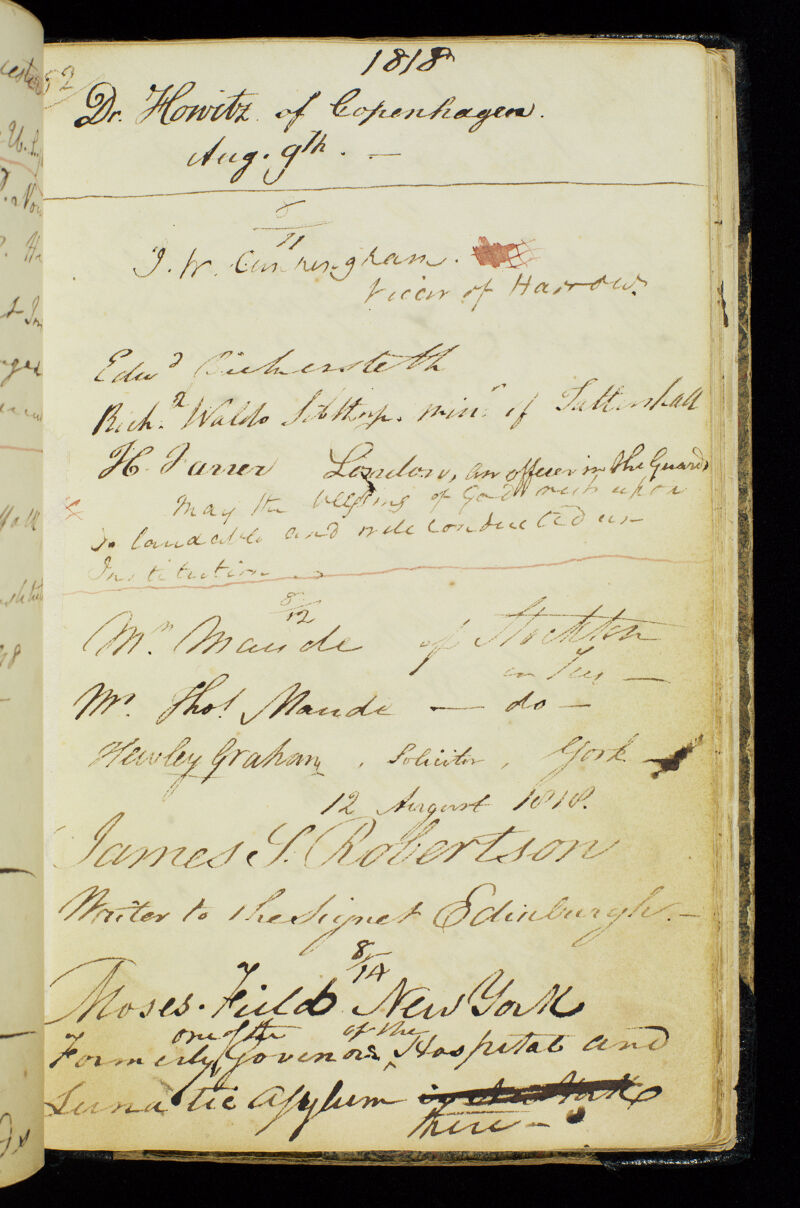 52
1818
Dr. Howitz of Copenhagen.
Aug. 9th. —
8/11
J. W. Cunningham.
Vicar of Harrow.
Edwd Bickersteth
Richd Waldo Sibthorp. minr of Tattershall
H. Farrer London, an officer in the Guards
May the blessing of God rest upon
So laudable and well conducted an
Institution.
8/12
Mr. Maude of Stockton
on Tees —
Mr. Thos. Maude — do —
Hewley Graham, Solicitor, York —
12 August 1818.
James S. Robertson
Writer to the Signet Edinburgh. —
8/14
Moses Field New York
one of the of the
Formerly Govenors Hospital and
Lunatic Asylum
there —